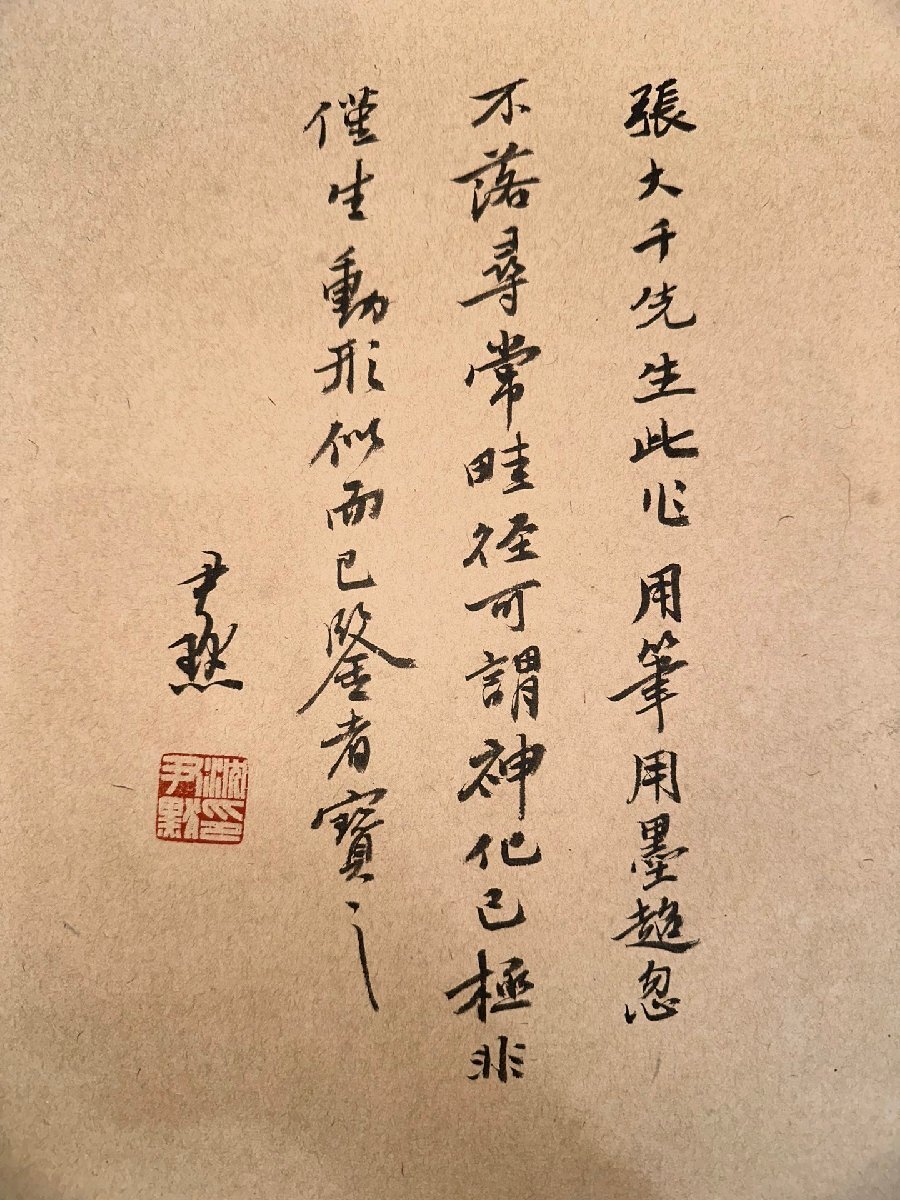 張大千先生此作用筆用墨超忽
不落尋常畦徑可謂神化已極非
僅生動形似而已鑒者寶之
尹默
沈尹默印